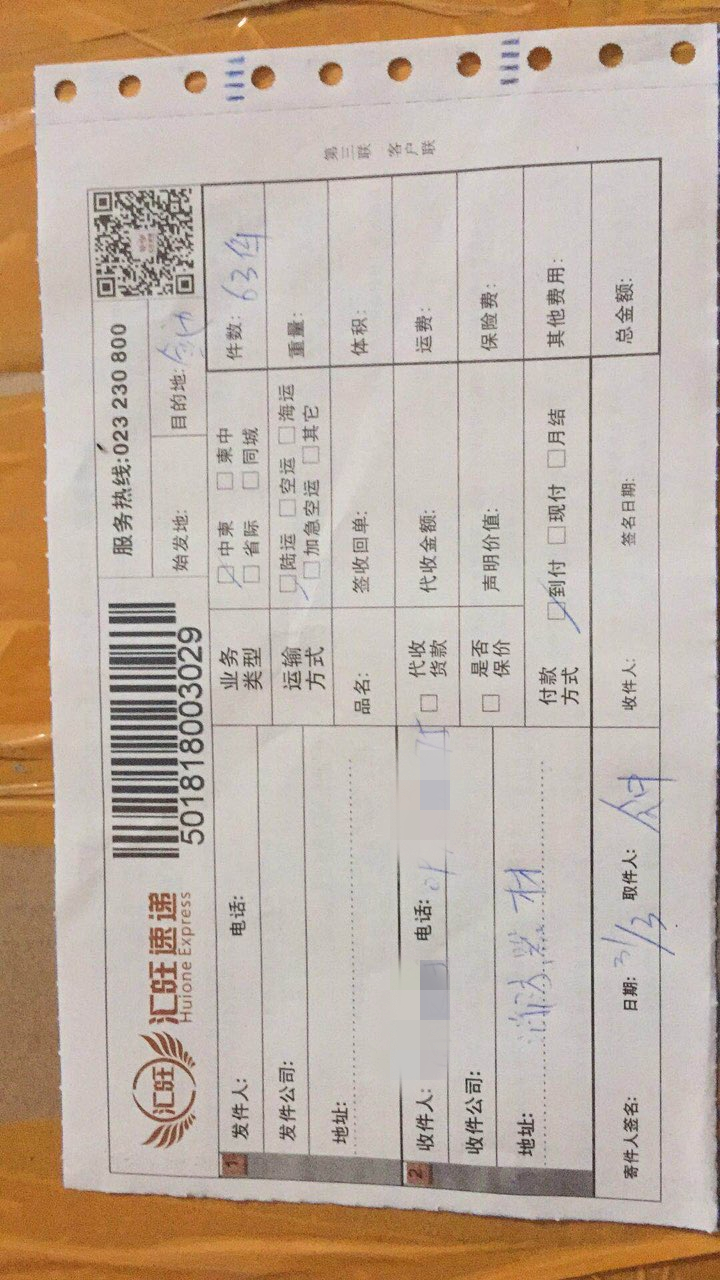 第三联 客户联
汇旺
汇旺速递
Huione Express
501818003029
服务热线:023 230 800
始发地:
目的地:
1 发件人: 电话:
发件公司:
地址:
2 收件人: 电话:
收件公司:
地址: 消防器材
业务类型 中柬 柬中
省际 同城
运输方式 陆运 空运 海运
加急空运 其它
品名: 签收回单:
代收货款 代收金额:
是否保价 声明价值:
付款方式 到付 现付 月结
件数: 63件
重量:
体积:
运费:
保险费:
其他费用:
总金额:
寄件人签名: 日期: 31/3 取件人:
收件人: 签名日期: